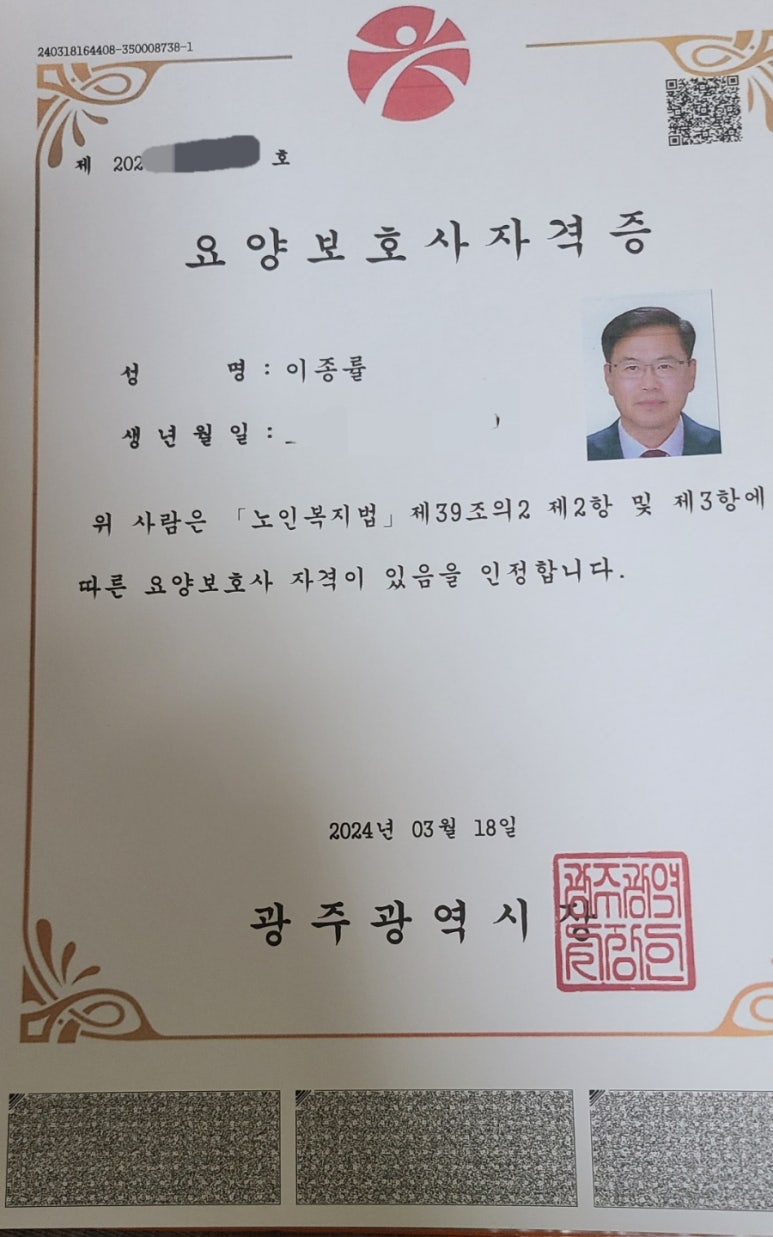 240318164408-350008738-1
제 202 호
요양보호사자격증
성 명 : 이종률
생년월일 :
위 사람은 「노인복지법」 제39조의2 제2항 및 제3항에
따른 요양보호사 자격이 있음을 인정합니다.
2024년 03월 18일
광주광역시장